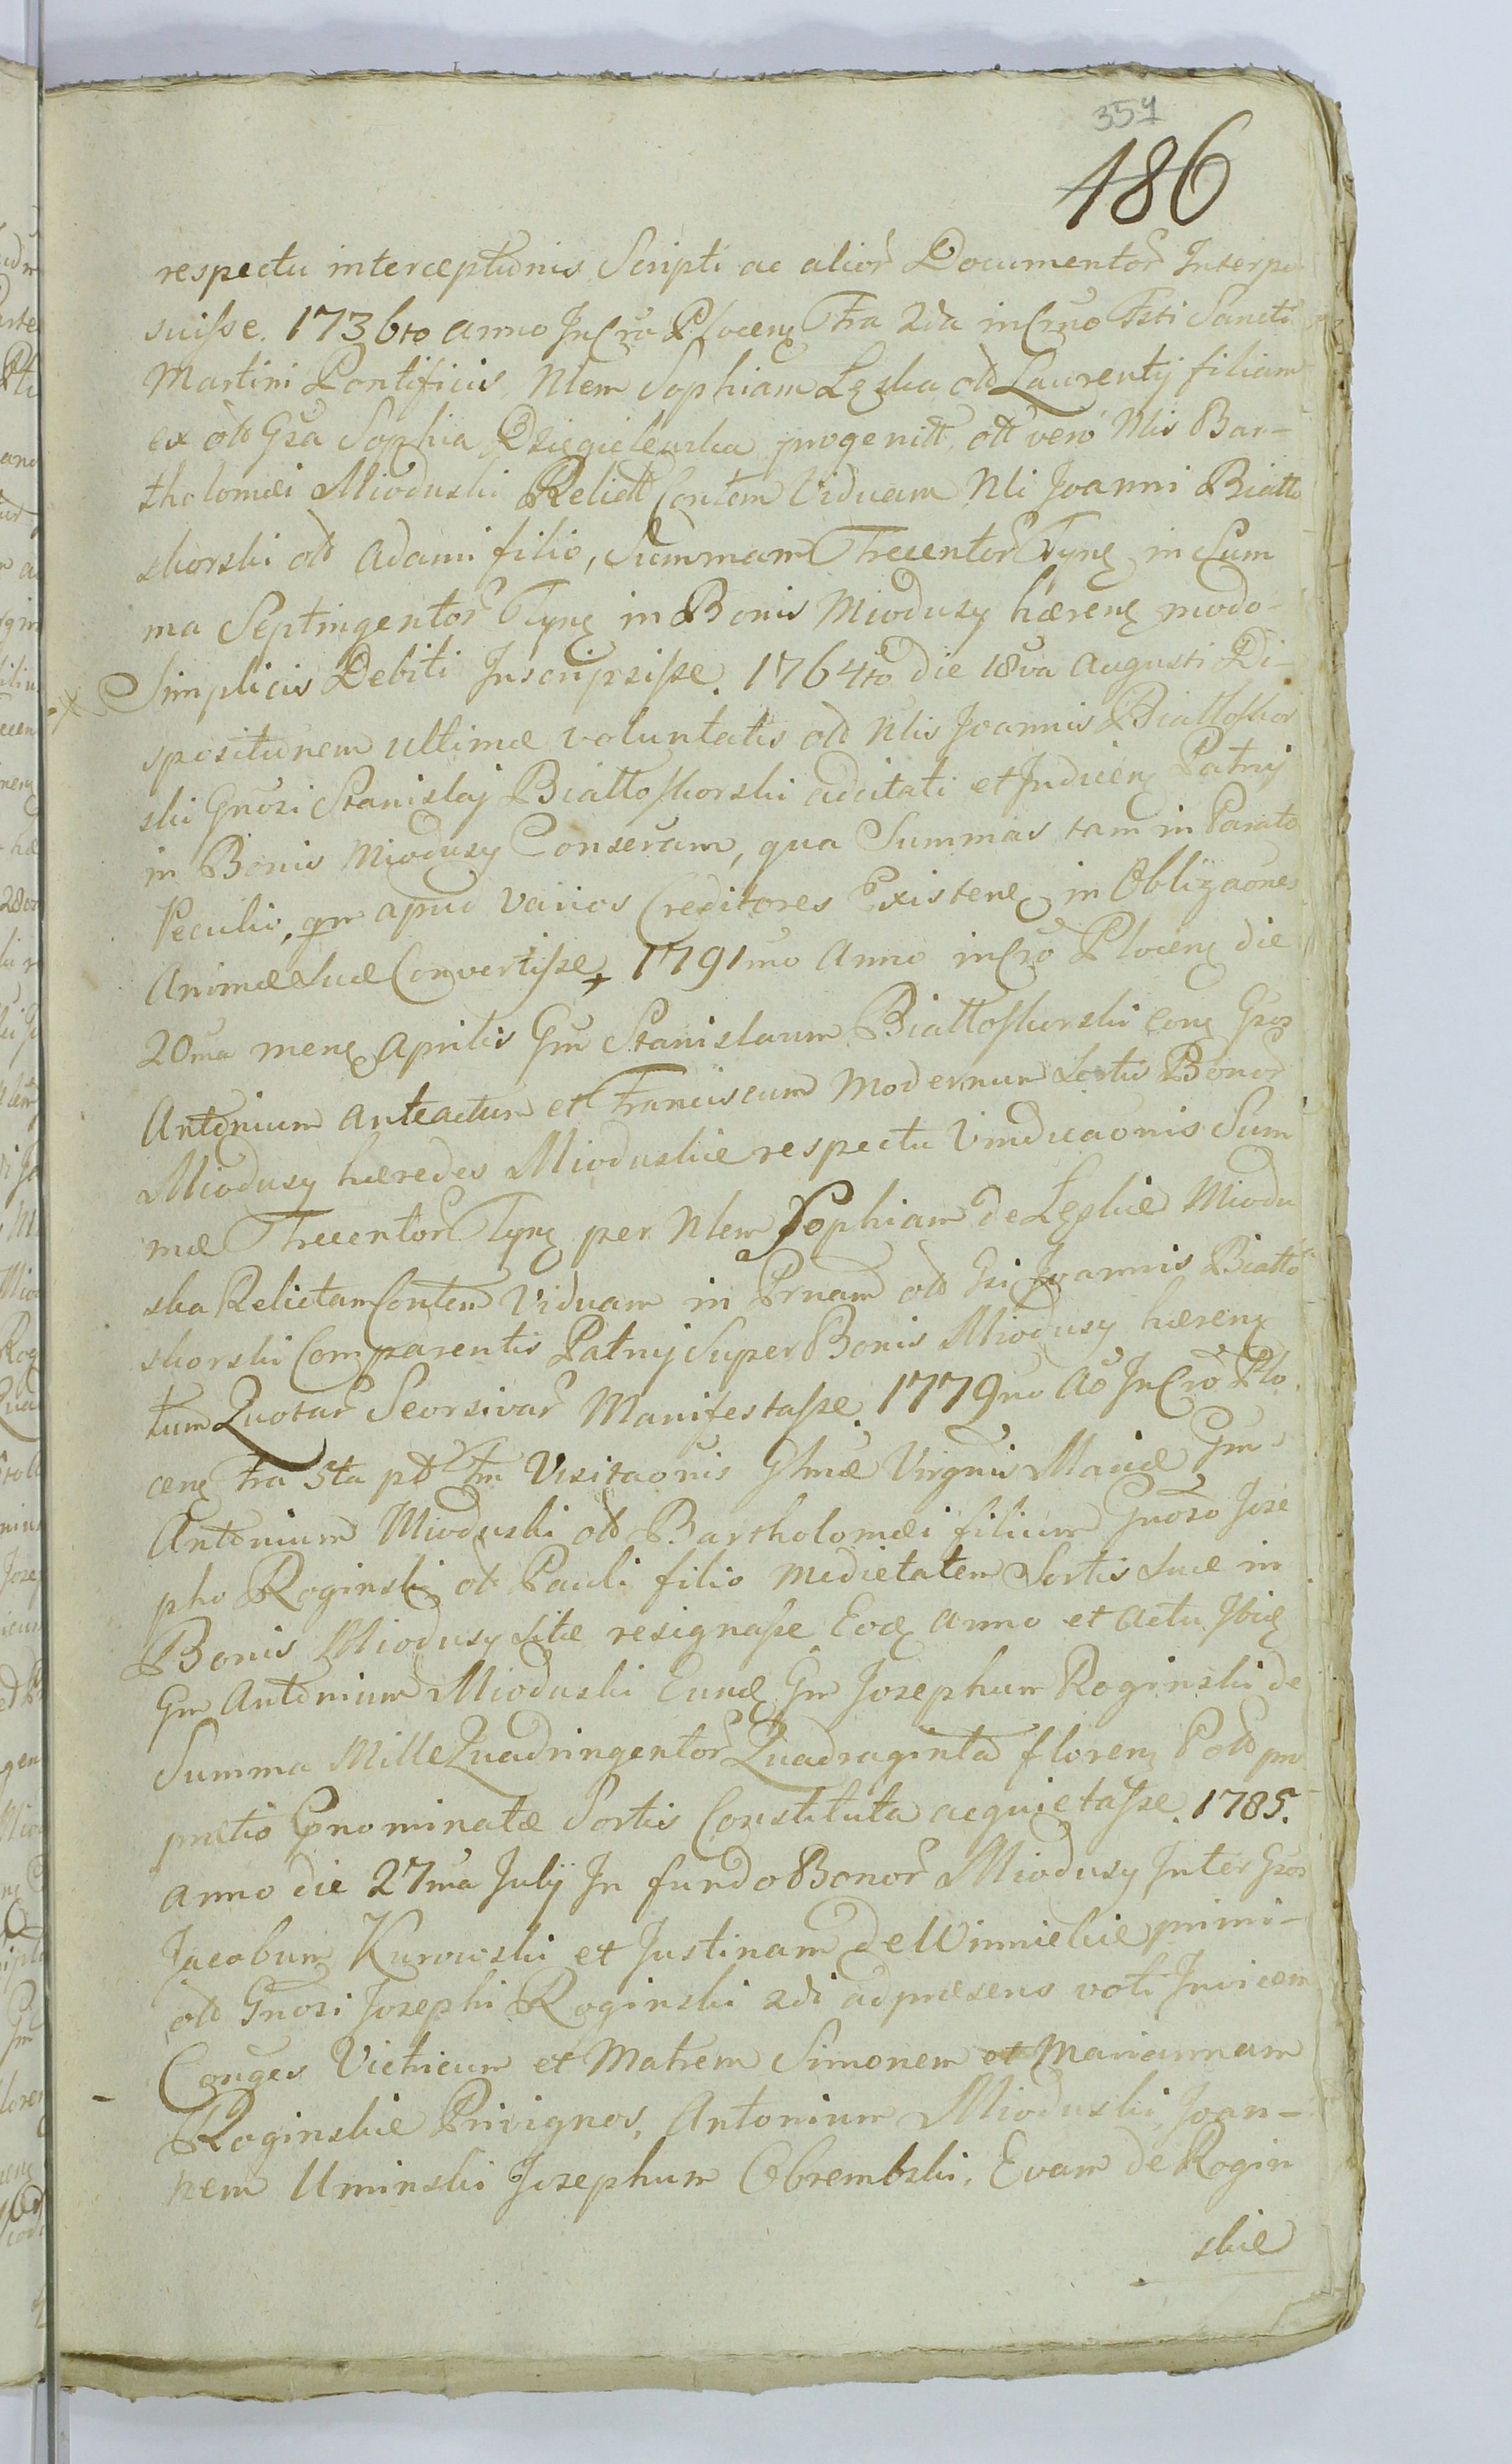 357
186
respectu interceptionis Scripti ac alior Documentor Interpo
suisse. 1736to anno In Cro Plocenę Fra 2da in Crno Fsti Sancti
Martini Pontificis Nlem Sophiam Lęska olb Laurentij filiam
ex olb Gsa Sophia Dzięgielewska progenitt, ott vero Nlis Bar-
tholomæi Mioduski Relictt Contem Viduam Nli Joanni Biatto
skorski olb Adami filio, Summam Trecentor Tynę in Sum
ma Septingentor Tynę in Bonis Miodusy hærenę modo
Simplicis Debiti Inscripsisse. 1764to die 18va Augusti Di-
spositionem ultimæ voluntatis olb Nlis Joannis Biattoskor
ski Gnosi Stanislaj Biattoskorski adcitati et Inducenę Patrij
in Bonis Miodusy Conseram, qua Summas tam in Parato
Peculio, qm apud Varios Creditores Existenę in Obligaones
Animæ Suæ Convertisse + 1791mo Anno in Cro Plocenę die
20ma menę Aprilis Gm Stanislaum Biattoskorski conę Gsos
Antonium anteactum et Franciscum modernum Sortis Bonor
Miodusy hæredes Mioduskie respectu Vindicaonis Sum
mæ Trecentor Tynę per Nlem Sophiam de Lęskie Miodu
ska Relictam Contem Viduam in Prnam olb Gsi Joannis Biatto
skorski Comparentis Patrij Super Bonis Miodusy hærenę
tum Quotar Seorsivar Manifestasse. 1779no Ao In Cro Plo
cenę fra 5ta pt fm Visitaonis Gsmæ Virgnis Mariæ Gm
Antonium Mioduski olb Bartholomæi filium Gnoso Jose
pho Roginski olb Pauli filio medietatem Sortis Suæ in
Bonis Miodusy sitæ resignasse Eodę anno et actu Ibidę
Gm Antonium Mioduski Eundę Gm Josephum Roginski de
Summa Mille Quadringentor Quadraginta florenę Polb pro
prætio Epnominatæ Sortis Constituta acquietasse. 1785.
anno die 27ma Julij In fundo Bonor Miodusy Inter Gsos
Jacobum Kurowski et Justinam de Winnickie primi-
olb Gnosi Josephi Roginski 2di ad præsens voti Invicem
Conges Vitricum et Matrem Simonem et Mariannam
Roginskie Privignos, Antonium Mioduski, Joan-
nem Uminski Josephum Obrembski, Evam de Rogin
skie